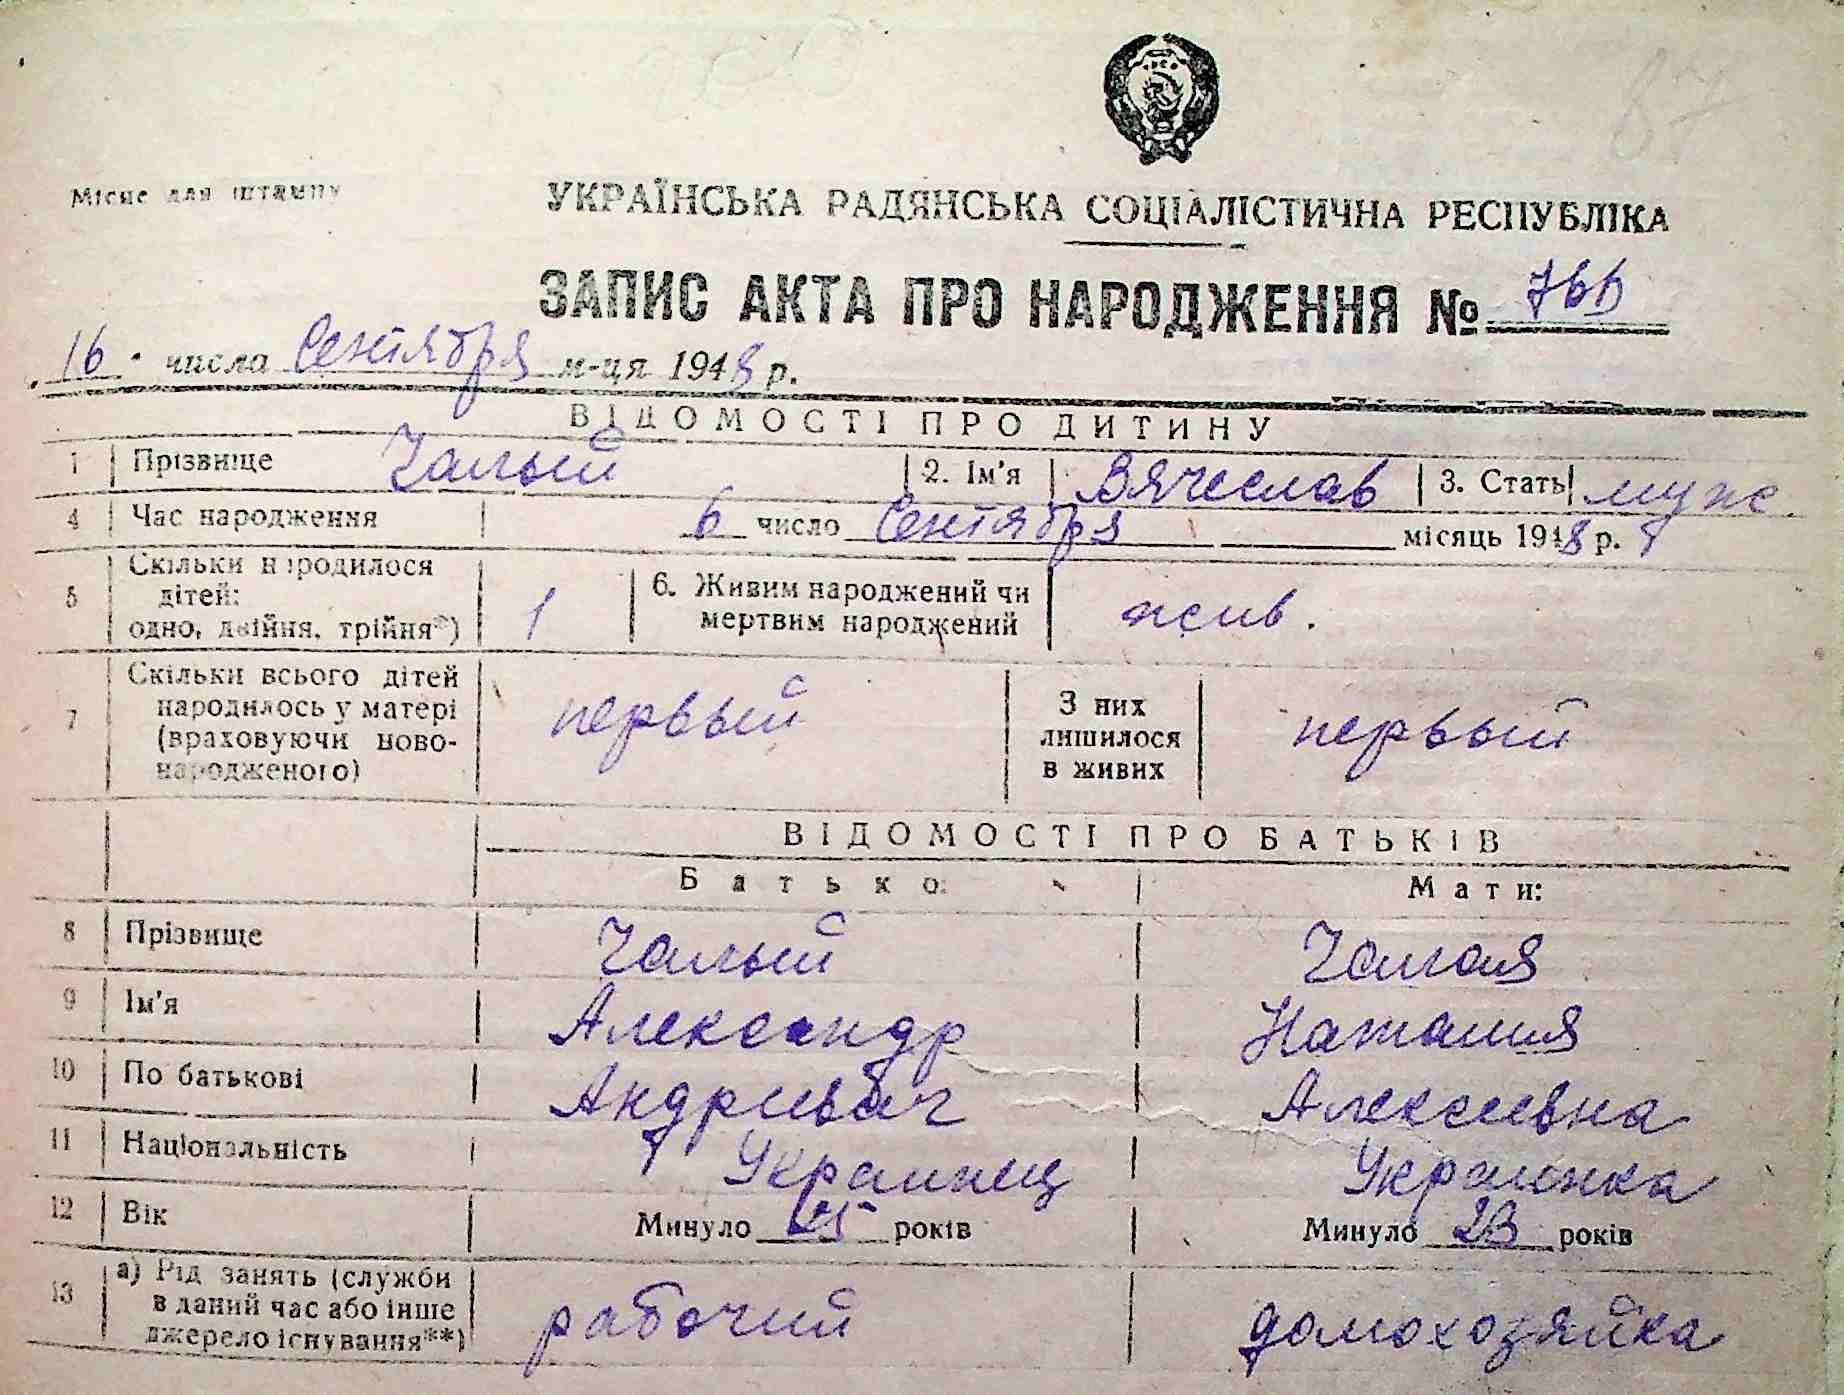 Місце для штампу
УКРАЇНСЬКА РАДЯНСЬКА СОЦІАЛІСТИЧНА РЕСПУБЛІКА
ЗАПИС АКТА ПРО НАРОДЖЕННЯ №
16 числа Сентября м-ця 1948 р.
ВІДОМОСТІ ПРО ДИТИНУ
1 Прізвище Чалый 2. Ім'я Вячеслав 3. Стать муж.
4 Час народження 6 число Сентября місяць 1948 р.
5 Скільки народилося дітей: одно, двійня, трійня*) 1 6. Живим народжений чи мертвим народжений жив.
7 Скільки всього дітей народилось у матері (враховуючи новонародженого) первый З них лишилося в живих первый
ВІДОМОСТІ ПРО БАТЬКІВ
Батько: Мати:
8 Прізвище Чалый Чалая
9 Ім'я Александр Наталия
10 По батькові Андриевич Алексеевна
11 Національність Украинец Украинка
12 Вік Минуло 25 років Минуло 23 років
13 а) Рід занять (служби в даний час або інше джерело існування**) рабочий домохозяйка